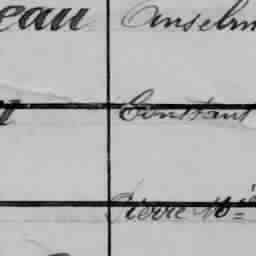 eau Anselm
Constant
Pierre M